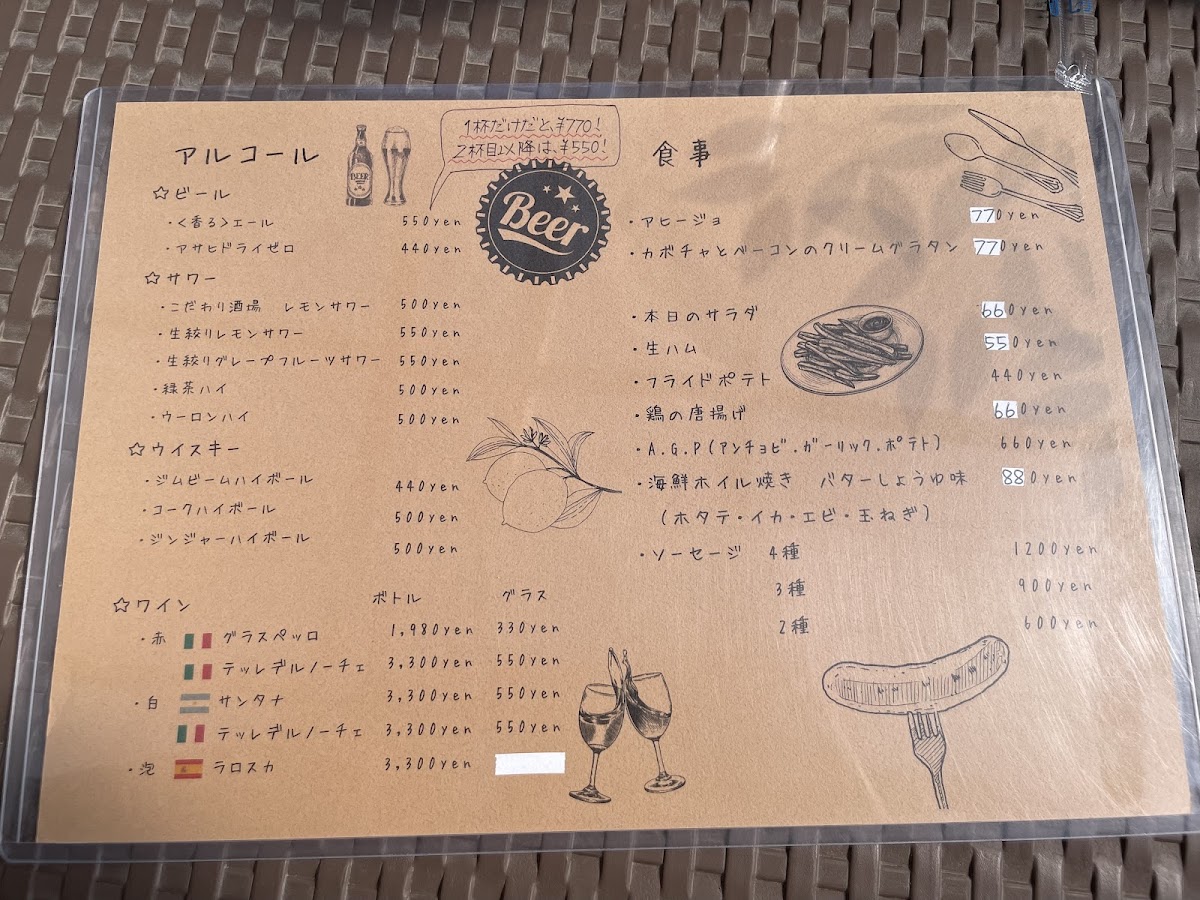 アルコール
BEER
1杯だけだと、¥770!
2杯目以降は、¥550!
Beer
☆ビール
・<香る>エール 550yen
・アサヒドライゼロ 440yen
☆サワー
・こだわり酒場 レモンサワー 500yen
・生絞りレモンサワー 550yen
・生絞りグレープフルーツサワー 550yen
・緑茶ハイ 500yen
・ウーロンハイ 500yen
☆ウイスキー
・ジムビームハイボール 440yen
・コークハイボール 500yen
・ジンジャーハイボール 500yen
☆ワイン ボトル グラス
・赤 グラスペッロ 1,980yen 330yen
テッレデルノーチェ 3,300yen 550yen
・白 サンタナ 3,300yen 550yen
テッレデルノーチェ 3,300yen 550yen
・泡 ラロスカ 3,300yen
食事
・アヒージョ 770yen
・カボチャとベーコンのクリームグラタン 770yen
・本日のサラダ 660yen
・生ハム 550yen
・フライドポテト 440yen
・鶏の唐揚げ 660yen
・A.G.P(アンチョビ.ガーリック.ポテト) 660yen
・海鮮ホイル焼き バターしょうゆ味 880yen
(ホタテ・イカ・エビ・玉ねぎ)
・ソーセージ 4種 1200yen
3種 900yen
2種 600yen